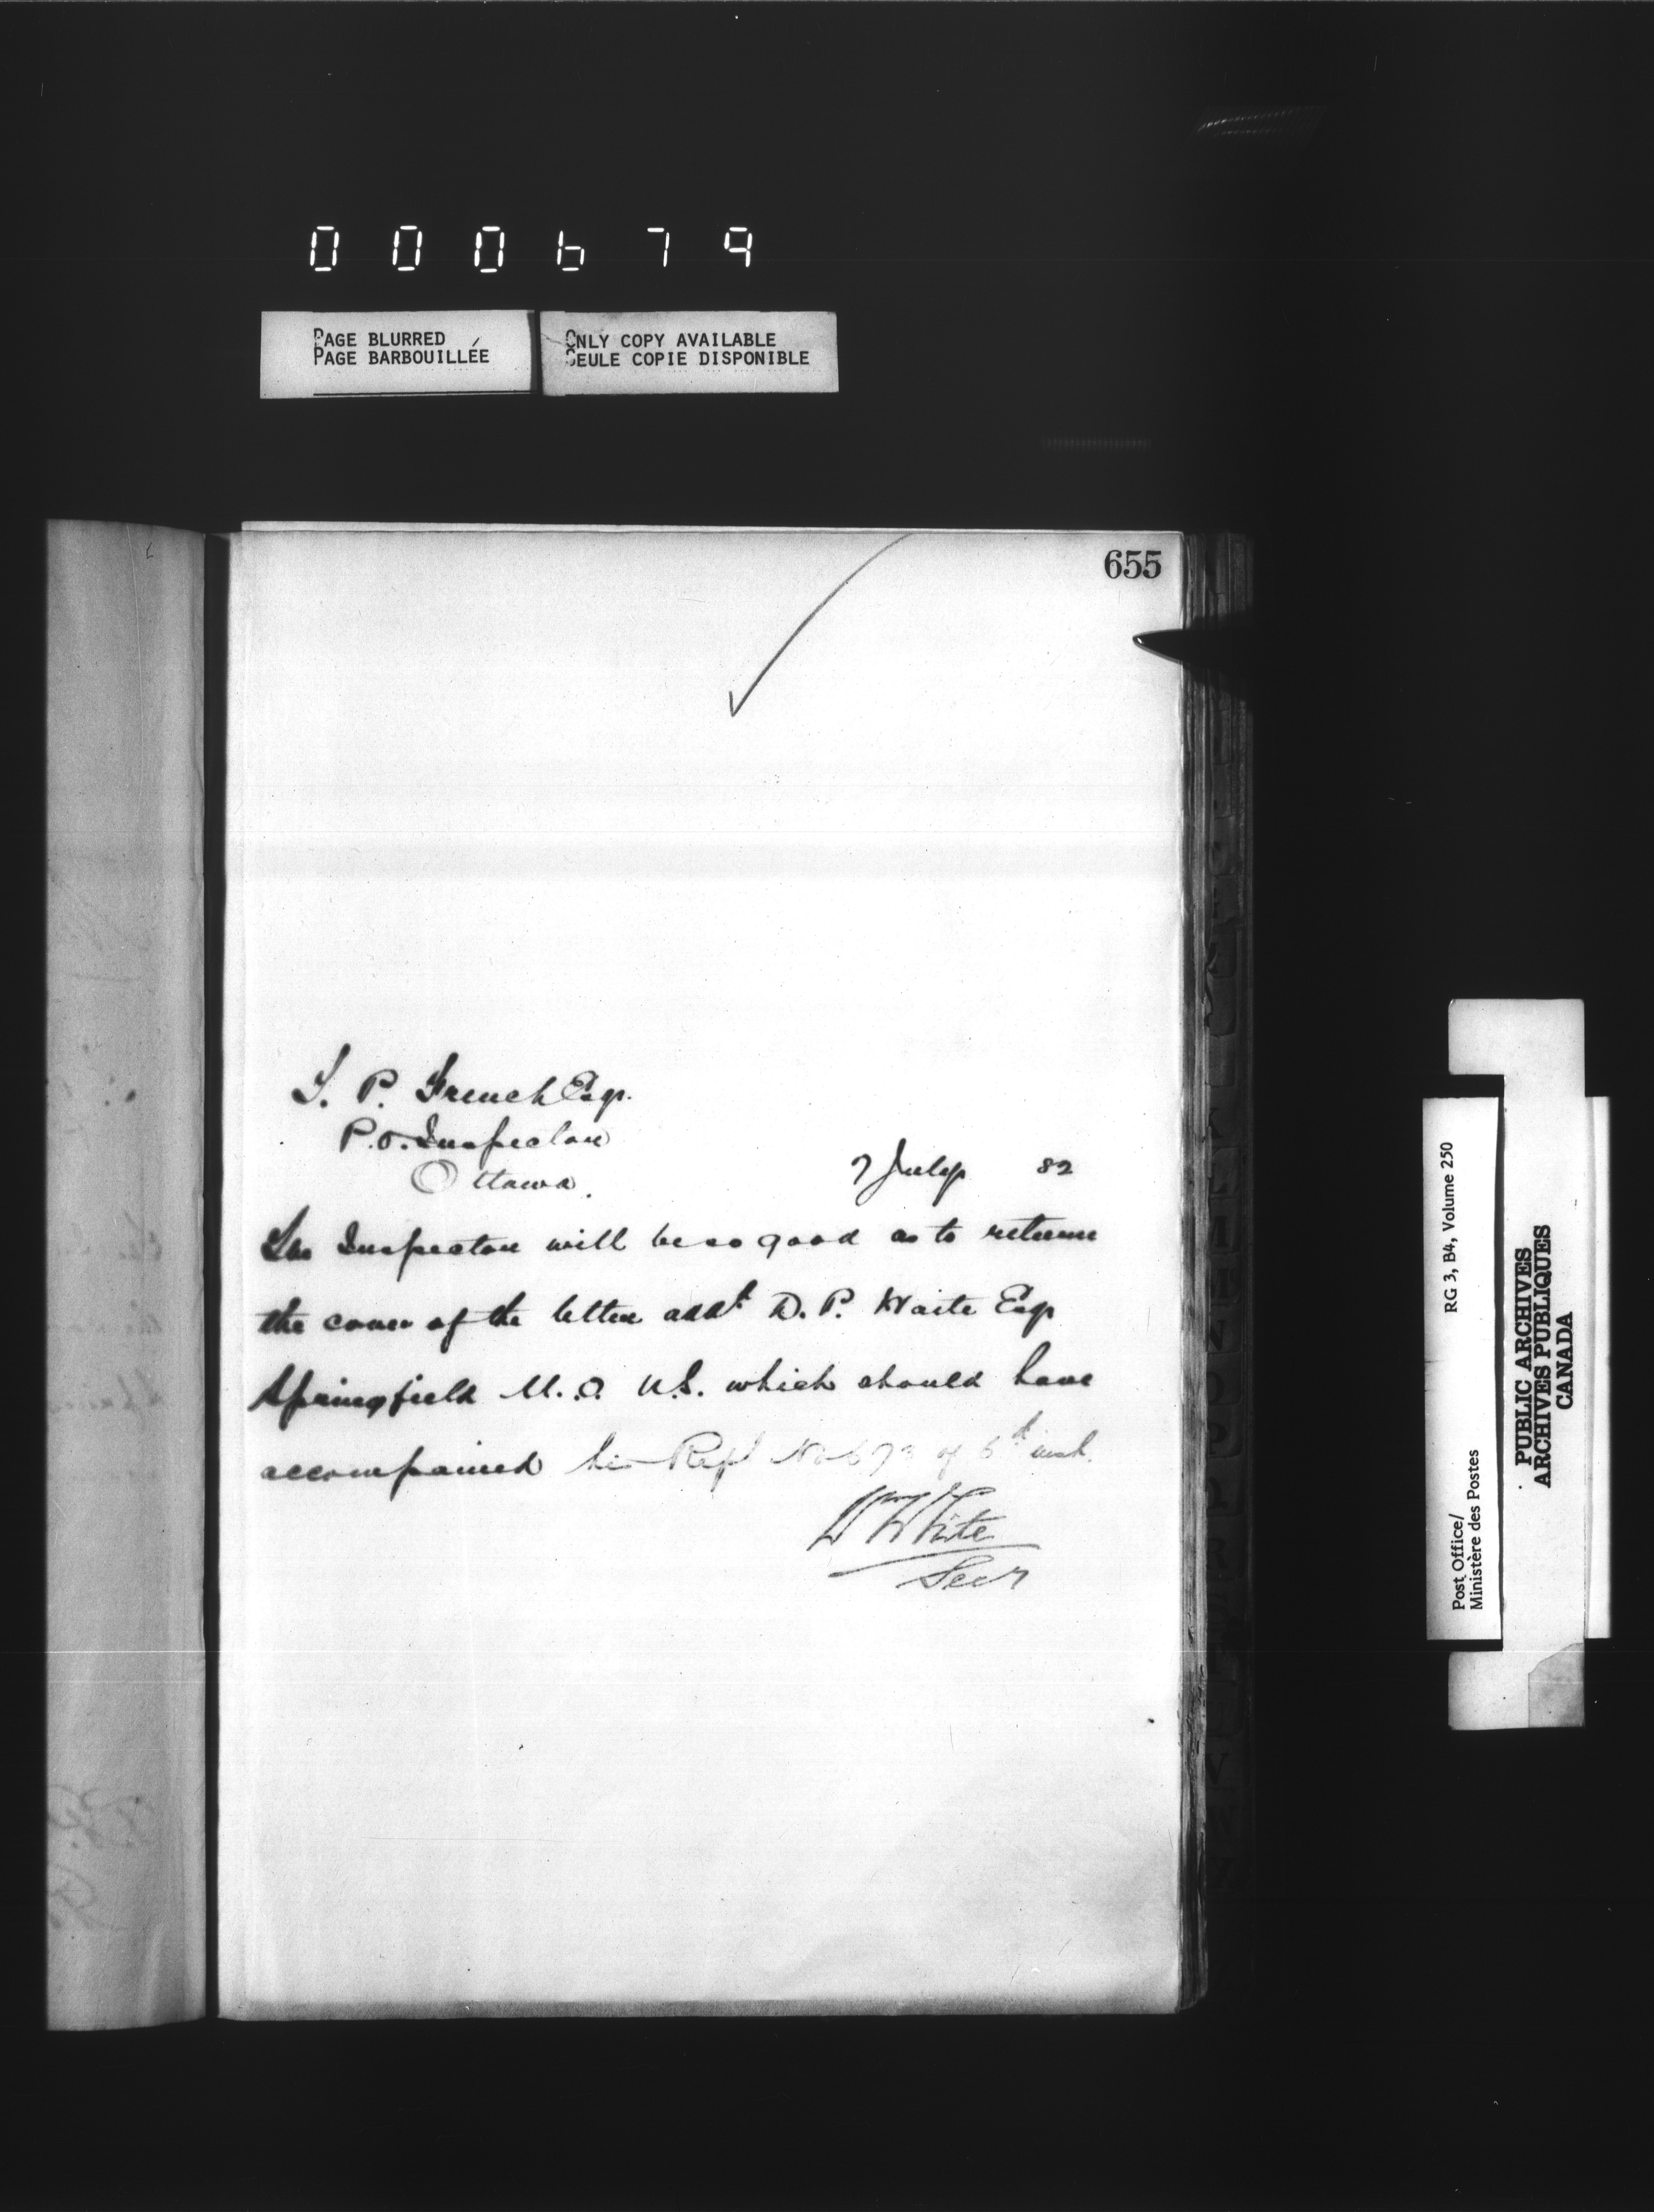 000679
PAGE BLURRED
PAGE BARBOUILLÉE
ONLY COPY AVAILABLE
SEULE COPIE DISPONIBLE
655
T. P. French Esq.
P.O. Inspector
Ottawa.
7 July 82
The Inspector will be so good as to return
the cover of the letter addd D. P. Waite Esq
Springfield M.O. U.S. which should have
accompained his Rept No 673 of 6th inst.
Wm White
Secy
RG 3, B4, Volume 250
Post Office/
Ministère des Postes
PUBLIC ARCHIVES
ARCHIVES PUBLIQUES
CANADA